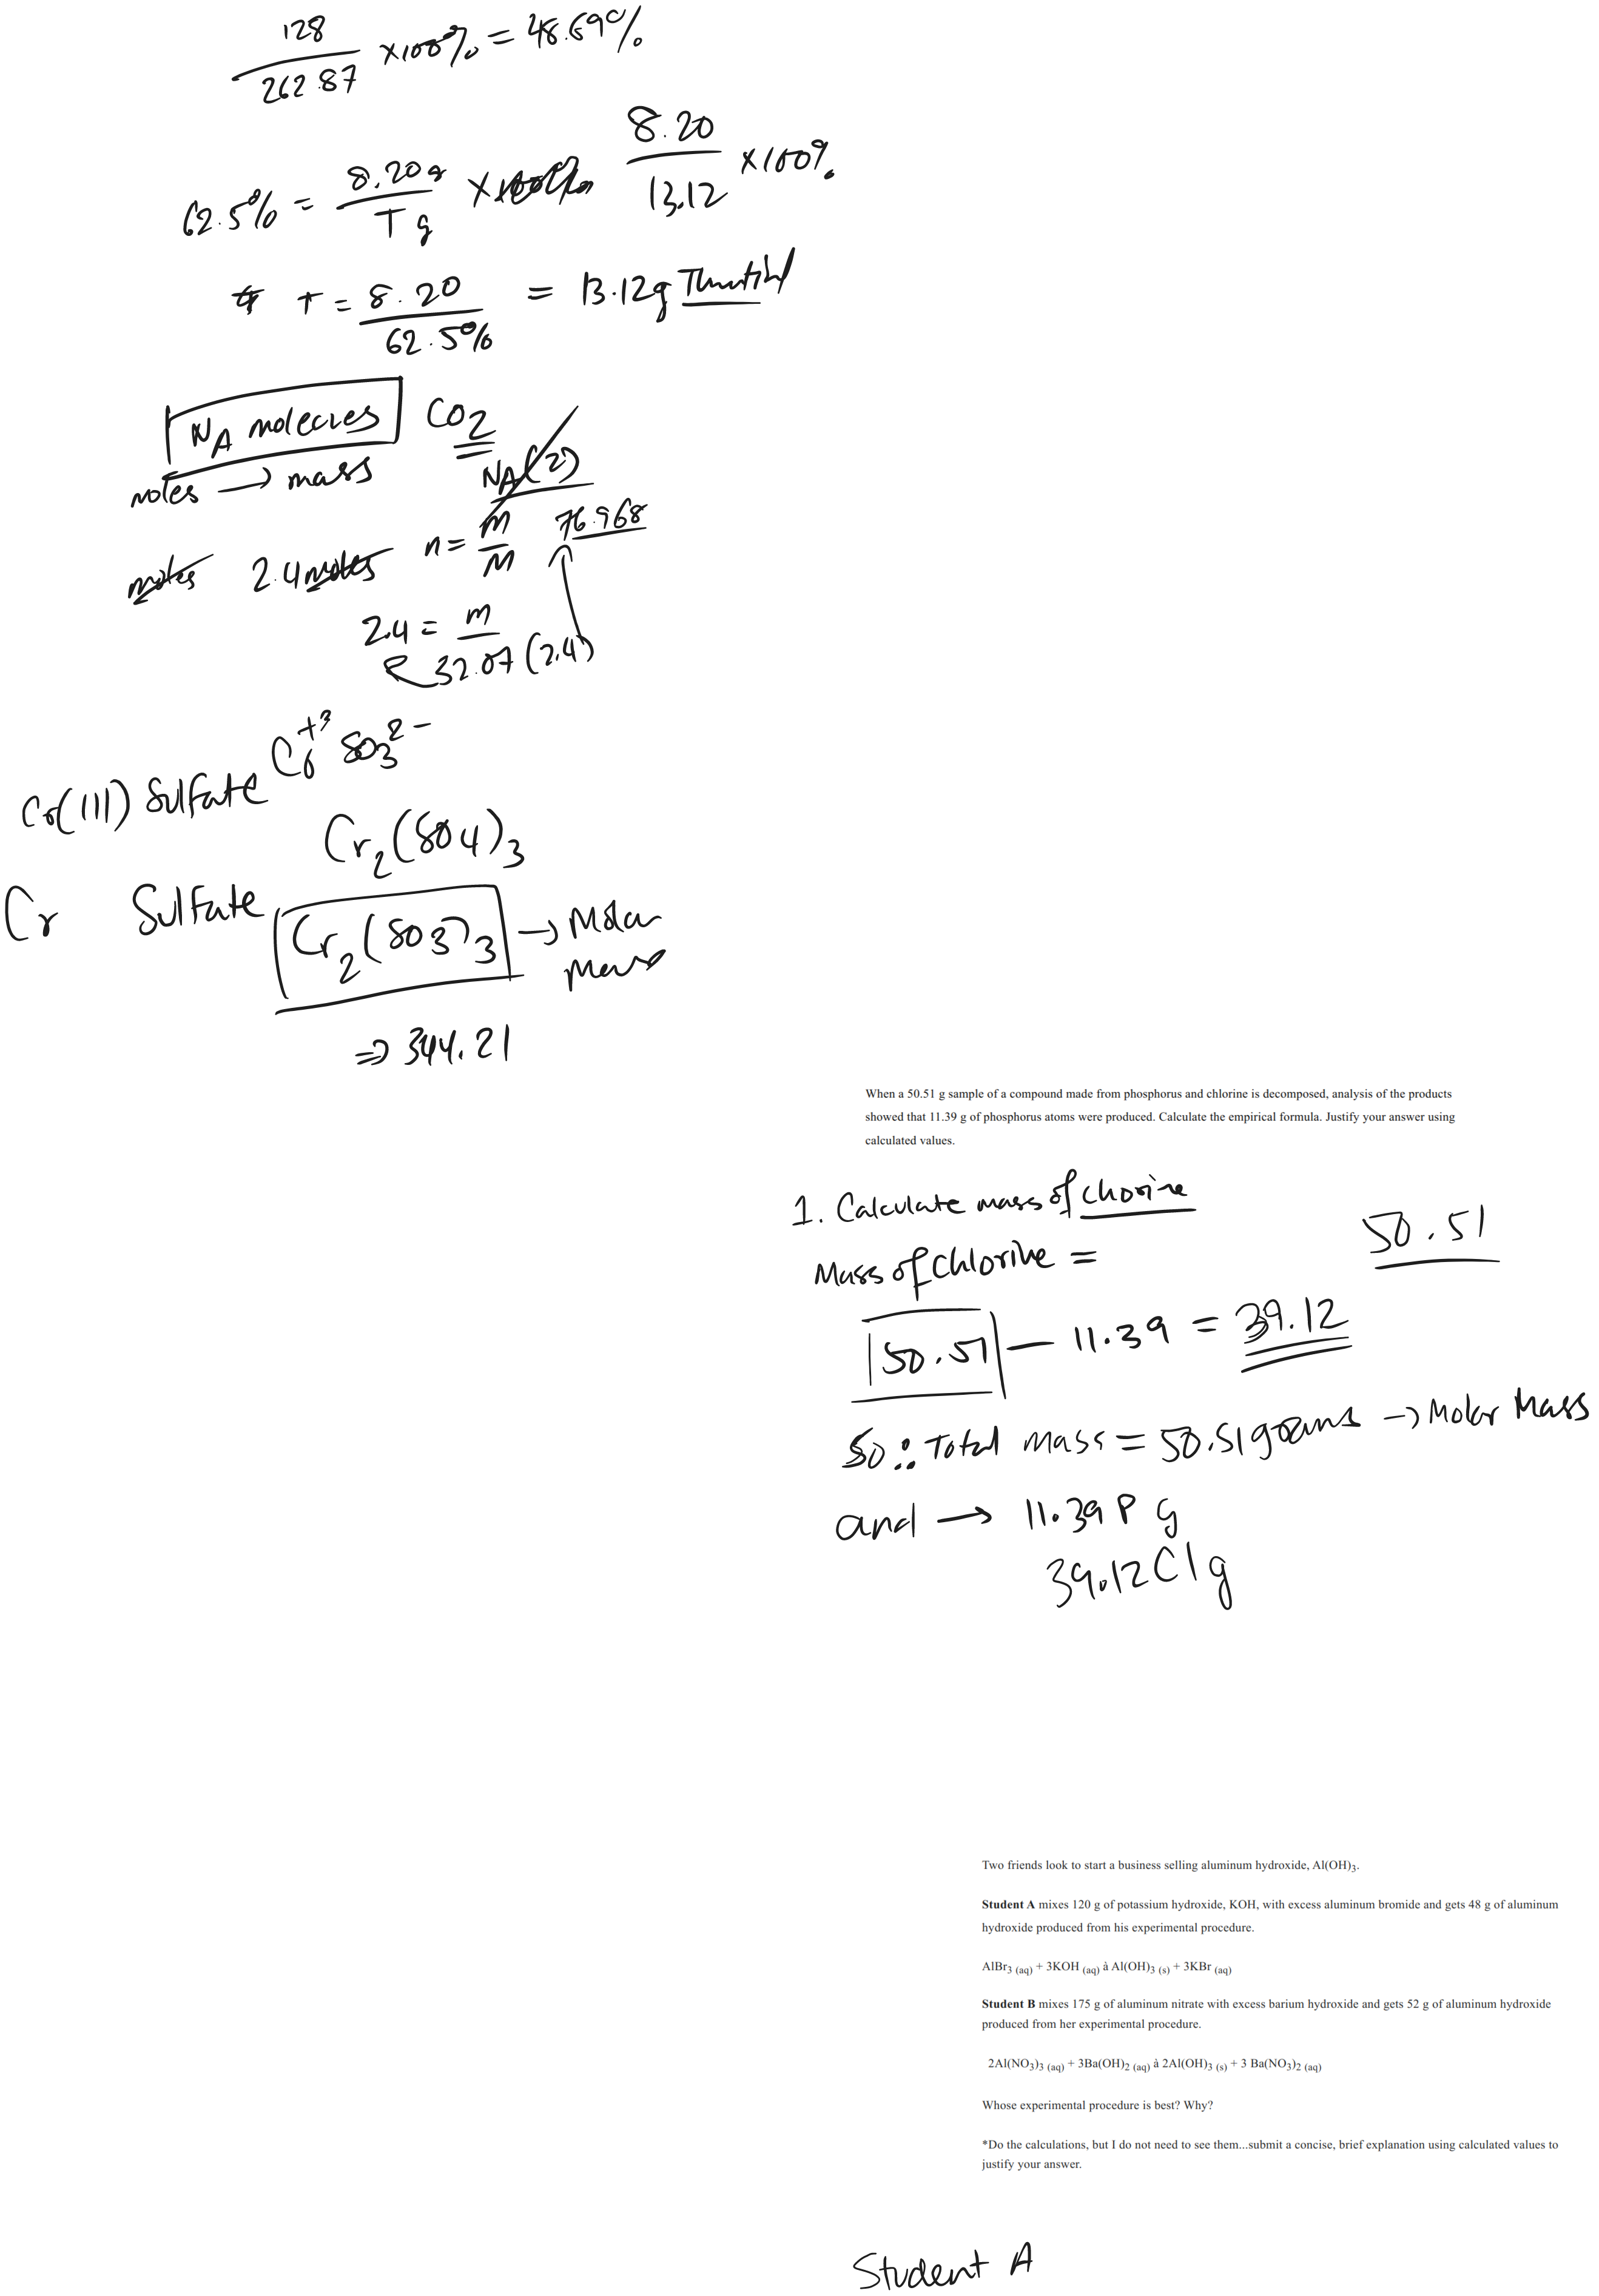 128
262.87 ×100% = 48.69%
62.5% = 8.20g
T g
8.20
13.12 ×100%
T = 8.20
62.5% = 13.12g
NA molecules CO2
moles → mass NA(2)
moles 2.4 moles n = m
M 76.968
2.4 = m
32.07 (2.4)
Cr(III) Sulfate Cr+3 SO3 2-
Cr2(SO4)3
Cr Sulfate Cr2(SO3)3 → Molar
⇒ 344.21
When a 50.51 g sample of a compound made from phosphorus and chlorine is decomposed, analysis of the products
showed that 11.39 g of phosphorus atoms were produced. Calculate the empirical formula. Justify your answer using
calculated values.
1. Calculate mass of chorine
Mass of Chlorine =
50.51
50.51 – 11.39 = 39.12
So ∴ Total mass = 50.51 grams → Molar Mass
and → 11.39 P g
39.12 Cl g
Two friends look to start a business selling aluminum hydroxide, Al(OH)3.
Student A mixes 120 g of potassium hydroxide, KOH, with excess aluminum bromide and gets 48 g of aluminum
hydroxide produced from his experimental procedure.
AlBr3 (aq) + 3KOH (aq) à Al(OH)3 (s) + 3KBr (aq)
Student B mixes 175 g of aluminum nitrate with excess barium hydroxide and gets 52 g of aluminum hydroxide
produced from her experimental procedure.
2Al(NO3)3 (aq) + 3Ba(OH)2 (aq) à 2Al(OH)3 (s) + 3 Ba(NO3)2 (aq)
Whose experimental procedure is best? Why?
*Do the calculations, but I do not need to see them...submit a concise, brief explanation using calculated values to
justify your answer.
Student A